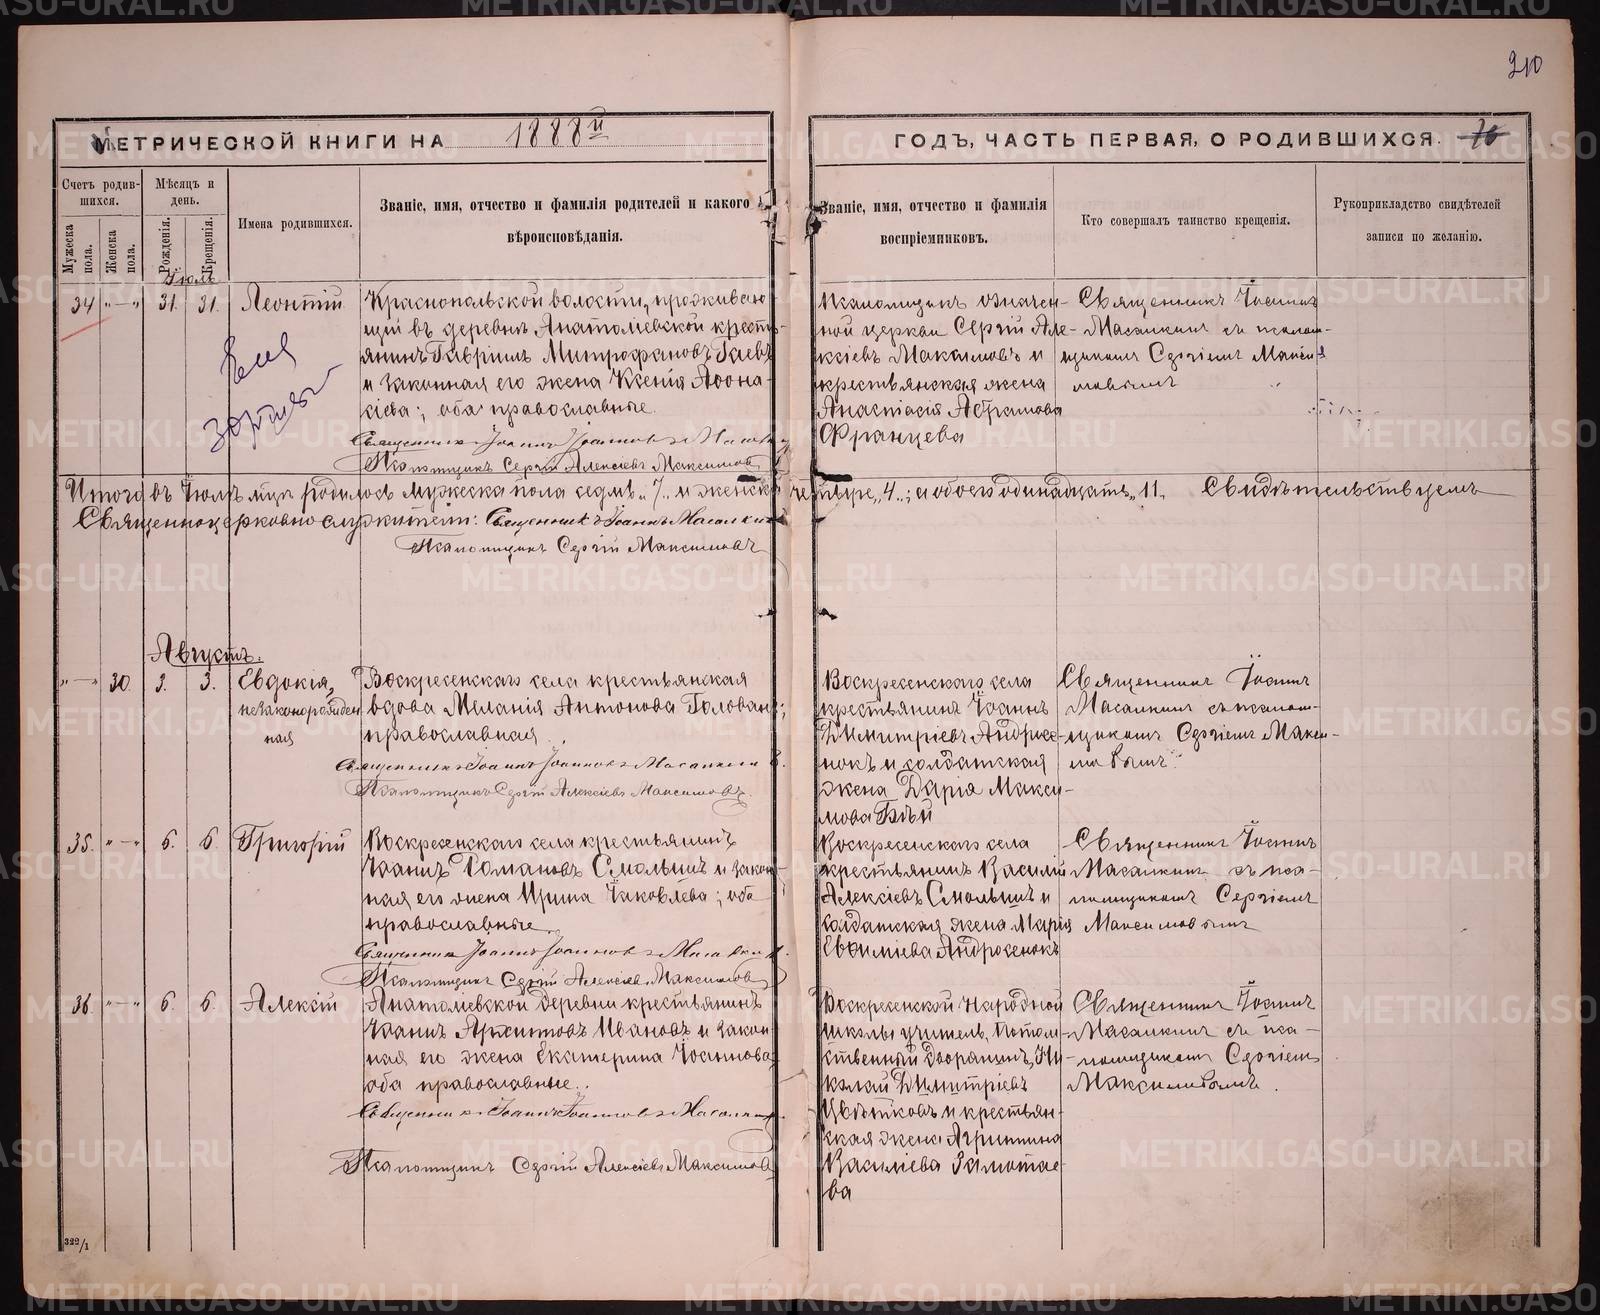 210
МЕТРИЧЕСКОЙ КНИГИ НА 1888й ГОДЪ, ЧАСТЬ ПЕРВАЯ, О РОДИВШИХСЯ. 70
Счетъ родившихся.
Мужеска пола.
Женска пола.
Мѣсяцъ и день.
Рожденія.
Крещенія.
Имена родившихся.
Званіе, имя, отчество и фамилія родителей и какого
вѣроисповѣданія.
Званіе, имя, отчество и фамилія
воспріемниковъ.
Кто совершалъ таинство крещенія.
Рукоприкладство свидѣтелей
записи по желанію.
Іюль
34 "—" 31. 31. Леонтій
Краснопольской волости, проживаю-
щій въ деревнѣ Анатоліевской кресть-
янинъ Гавріилъ Митрофановъ Гаевъ
и законная его жена Ксенія Афона-
сіева; оба православные.
Священникъ Іоаннъ Іоанновъ
Псаломщикъ Сергій Алексіевъ Максимовъ
Псаломщикъ означен-
ной церкви Сергій Але-
ксіевъ Максимовъ и
крестьянская жена
Анастасія Абрамова
Францева
Священникъ Іоаннъ
Масалкинъ съ псалом-
щикомъ Сергіемъ Макси-
мовымъ
Итого въ Іюлѣ мцѣ родилось мужеска пола седмь „7„ и женска четыре „4„; а обоего одинадцать „11„ Свидѣтельствуемъ
Священноцерковнослужители: Священникъ Іоаннъ Масалкинъ
Псаломщикъ Сергій Максимовъ
Августъ.
"—" 30. 3. 3. Евдокія,
незаконорожден
ная
Воскресенскаго села крестьянская
вдова Меланія Антонова Голован;
православная.
Священникъ Іоаннъ Іоанновъ Масалкинъ
Псаломщикъ Сергій Алексіевъ Максимовъ.
Воскресенскаго села
крестьянинъ Іоаннъ
Димитріевъ Андросе-
нокъ и солдатская
жена Дарія Макси-
мова Бѣй
Священникъ Іоаннъ
Масалкинъ съ псалом-
щикомъ Сергіемъ Макси-
мовымъ.
35. "—" 6. 6. Григорій
Воскресенскаго села крестьянинъ
Іоаннъ Романовъ Смольничъ и закон
ная его жена Ирина Іаковлева; оба
православные.
Священникъ Іоаннъ Іоанновъ Масалкинъ.
Псаломщикъ Сергій Алексіевъ Максимовъ
Воскресенскаго села
крестьянинъ Василій
Алексіевъ Смольничъ и
солдатская жена Марія
Евфиміева Андросенокъ
Священникъ Іоаннъ
Масалкинъ съ пса-
ломщикомъ Сергіемъ
Максимовымъ
36. "—" 6. 6. Алексій
Анатоліевской деревни крестьянинъ
Іоаннъ Архиповъ Ивановъ и закон
ная его жена Екатерина Іоаннова,
оба православные.
Священникъ Іоаннъ Іоанновъ Масалкинъ.
Псаломщикъ Сергій Алексіевъ Максимовъ
Воскресенской Народной
школы учитель, потом-
ственный дворянинъ, Ни-
колай Димитріевъ
Цвѣтковъ и крестьян-
ская жена Агриппина
Василіева Замотае-
ва
Священникъ Іоаннъ
Масалкинъ съ пса-
ломщикомъ Сергіемъ
Максимовымъ.
322/1
METRIKI.GASO-URAL.RU